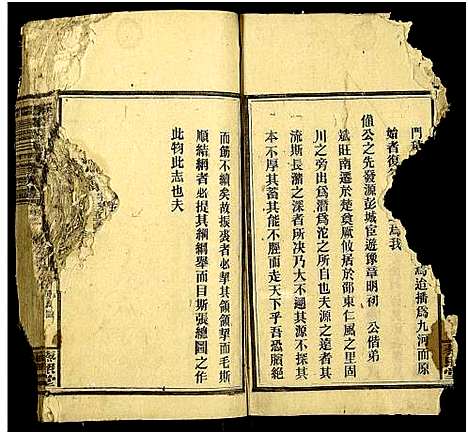 門
為逆播為九河而原
始者復
為我
偵公之先發源彭城宦遊豫章明初 公偕弟
斌旺南遷於楚奠厥攸居於邵東仁風之里固
川之旁出為潛為沱之所自也夫源之遠者其
流斯長瀦之深者所決乃大不遡其源不探其
本不厚其蓄其能不脛而走天下乎吾恐脂絶
而薊不續矣故振裘者必挈其領領挈而毛斯
順結網者必提其綱綱舉而目斯張總圖之作
此物此志也夫